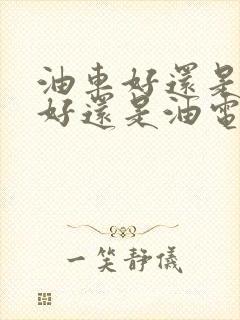 油車好還是
好還是油電
一笑靜儀